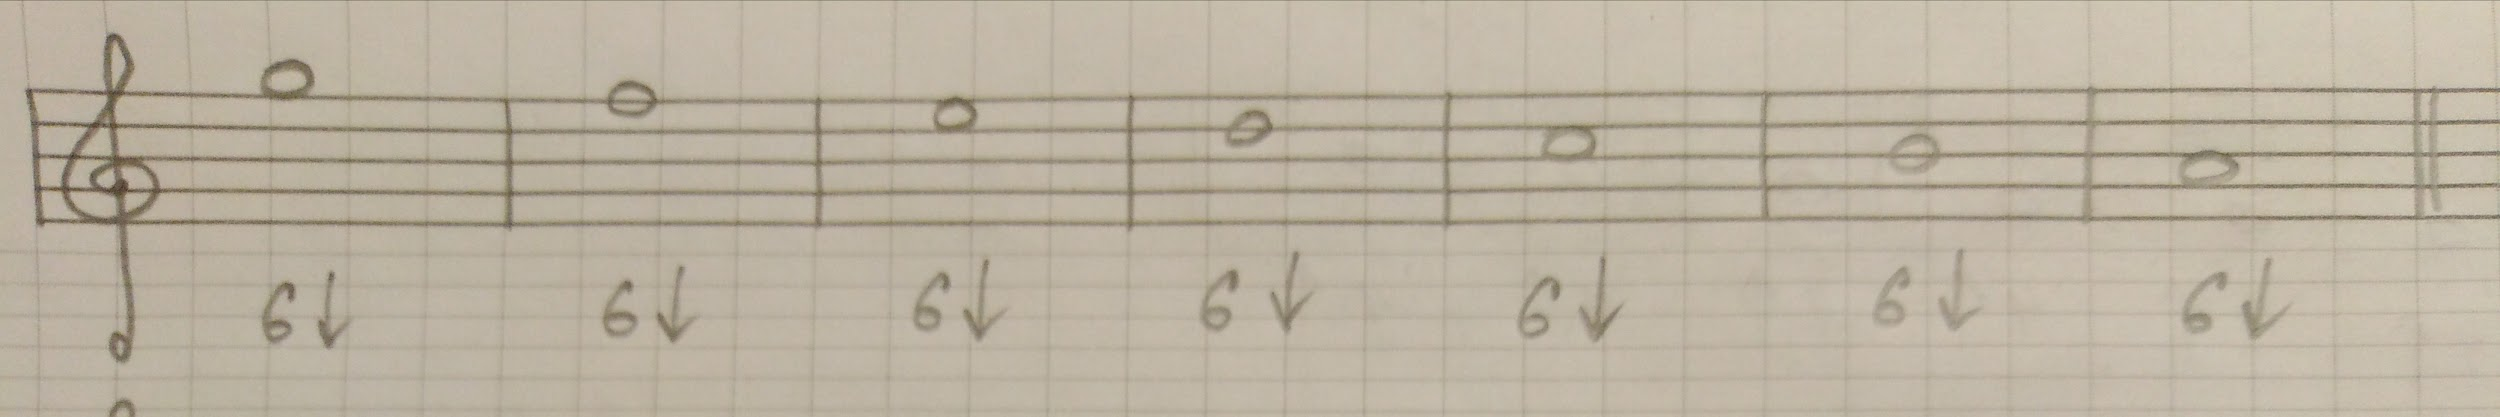 6↓ 6↓ 6↓ 6↓ 6↓ 6↓ 6↓